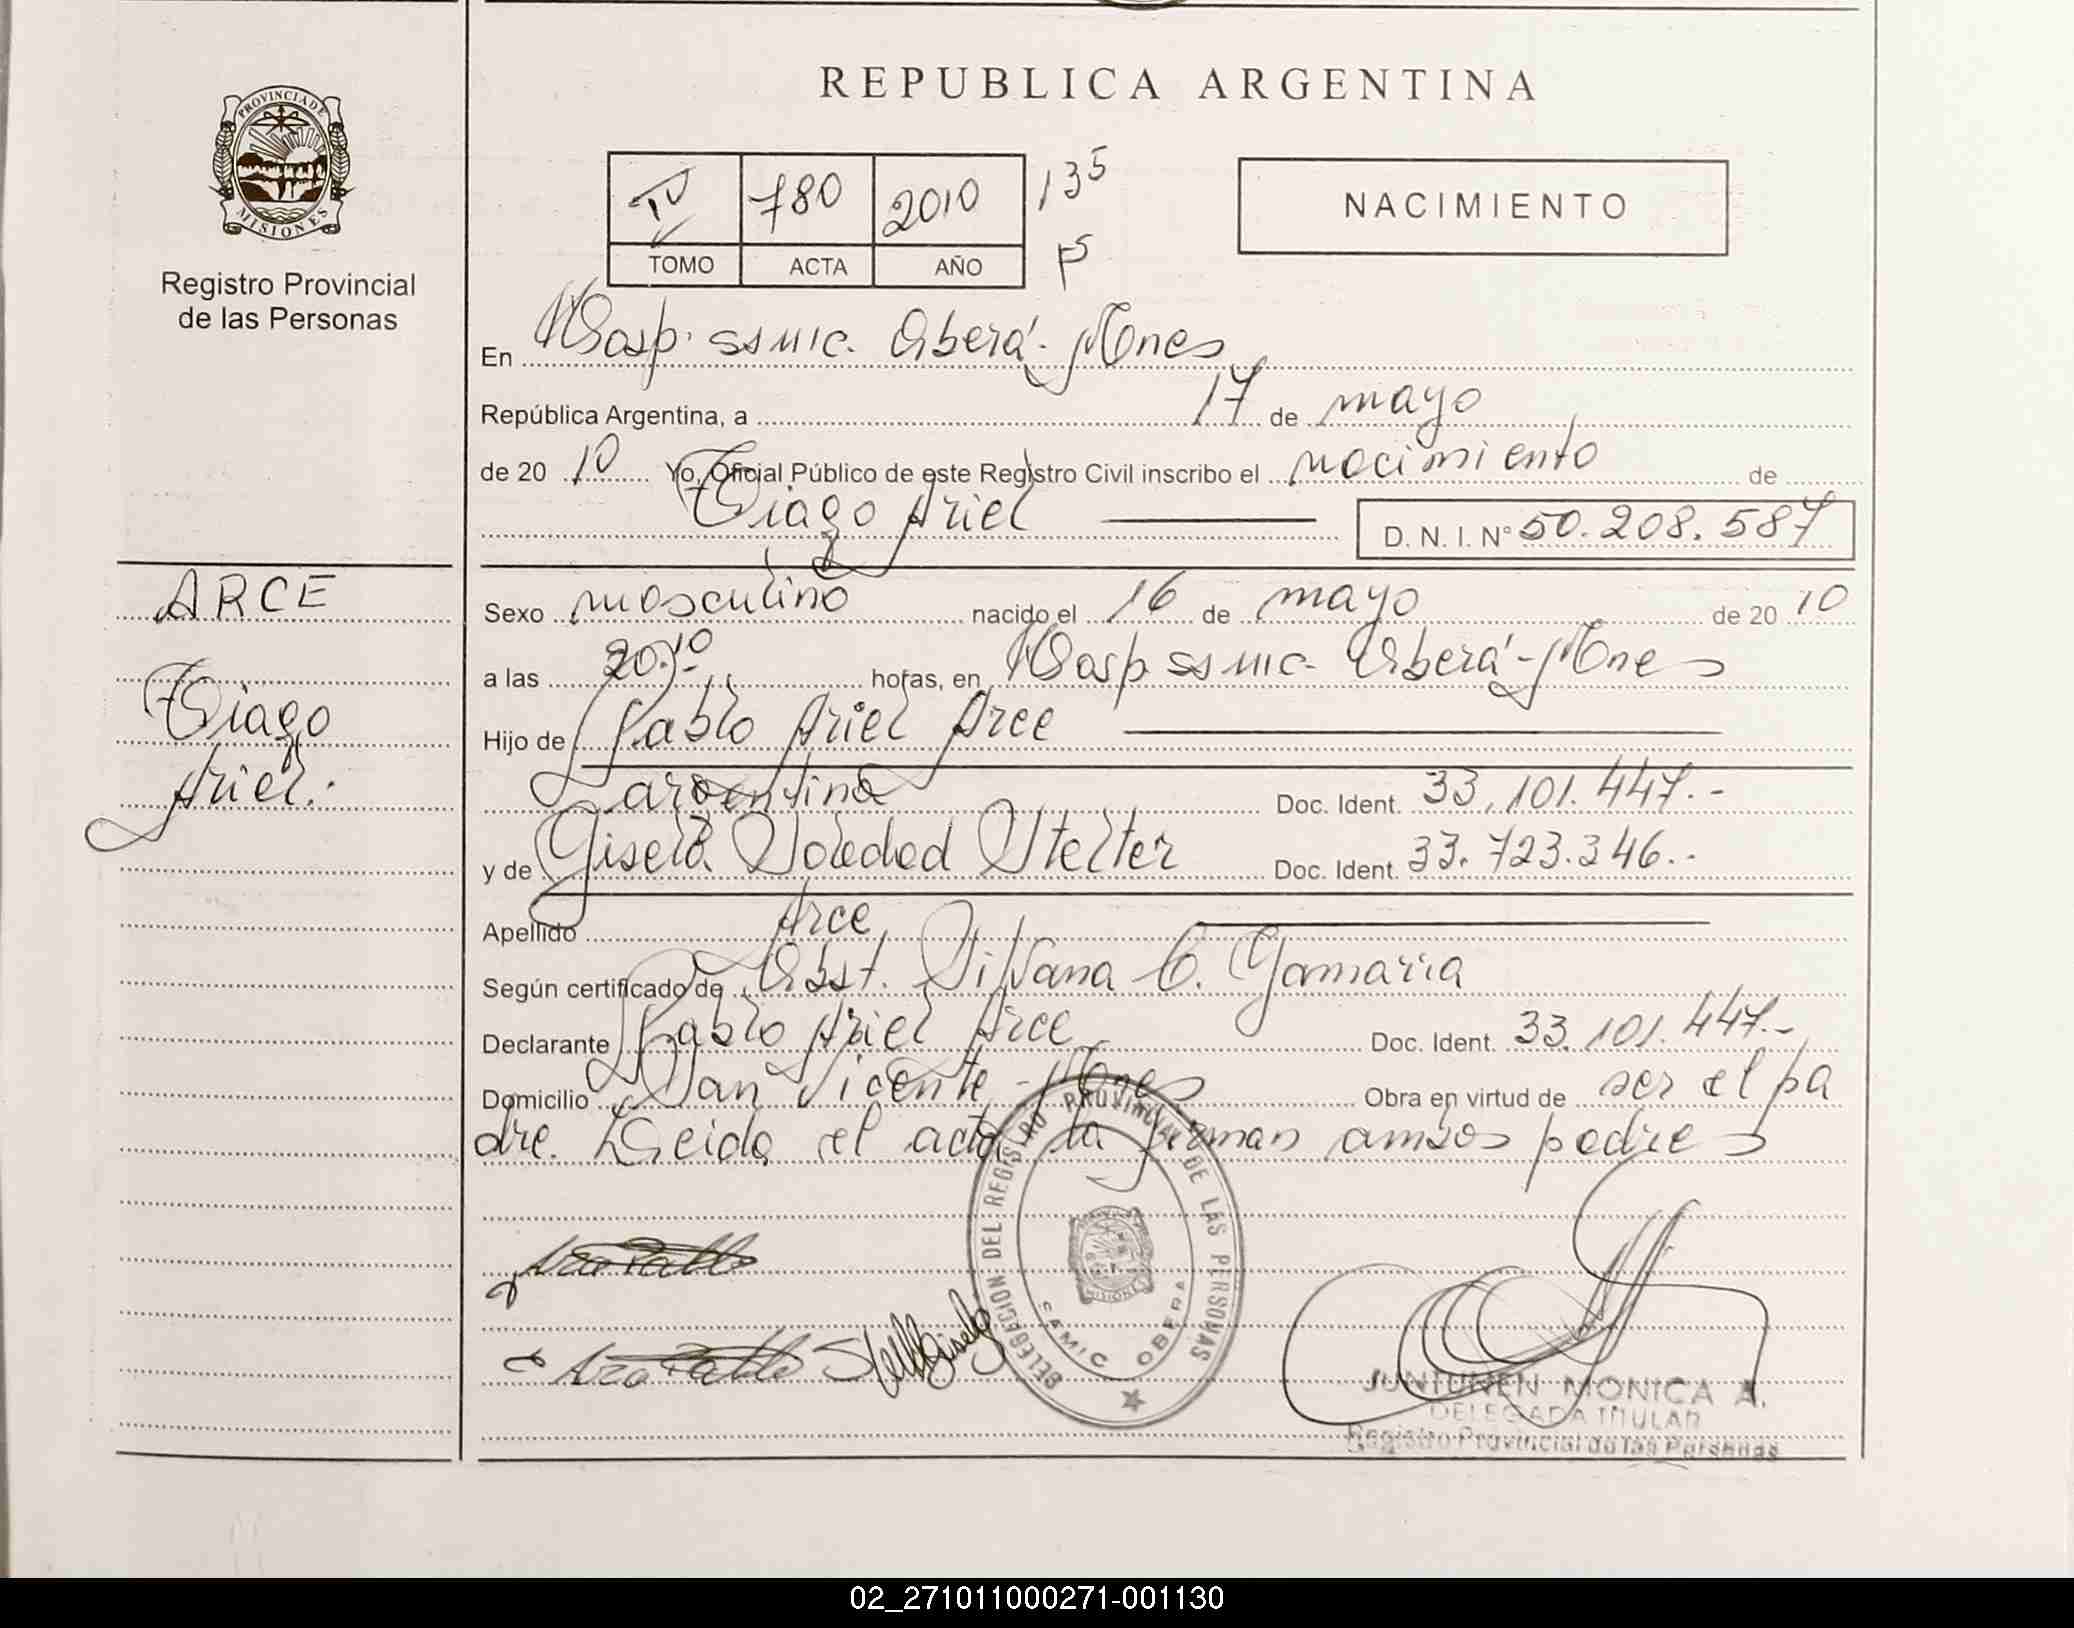 REPUBLICA ARGENTINA
PROVINCIA DE
MISIONES
Registro Provincial
de las Personas
IV 780 2010 135
TOMO ACTA AÑO
NACIMIENTO
En Hosp. SAMIC. Oberá - Mnes
República Argentina, a 17 de mayo
de 20 10 Yo, Oficial Público de este Registro Civil inscribo el nacimiento de
Tiago Ariel D. N. I. N° 50.208.587
ARCE
Tiago
Ariel.
Sexo masculino nacido el 16 de mayo de 20 10
a las 20.10 horas, en Hosp SAMIC. Oberá - Mnes
Hijo de Pablo Ariel Arce
argentina Doc. Ident. 33.101.447.-
y de Gisela Soledad Stelter Doc. Ident. 33.723.346.-
Apellido Arce
Según certificado de Obst. Silvana C. Gamarra
Declarante Pablo Ariel Arce Doc. Ident. 33.101.447.-
Domicilio San Vicente - Mnes Obra en virtud de ser el pa
dre. Leida el acta la firman ambos padres
Arce Pablo
Arce Pablo Gisela
DELEGACION DEL REGISTRO PROVINCIAL DE LAS PERSONAS
MISIONES
SAMIC OBERA
JUNTUNEN MONICA A.
DELEGADA TITULAR
Registro Provincial de las Personas
02_271011000271-001130